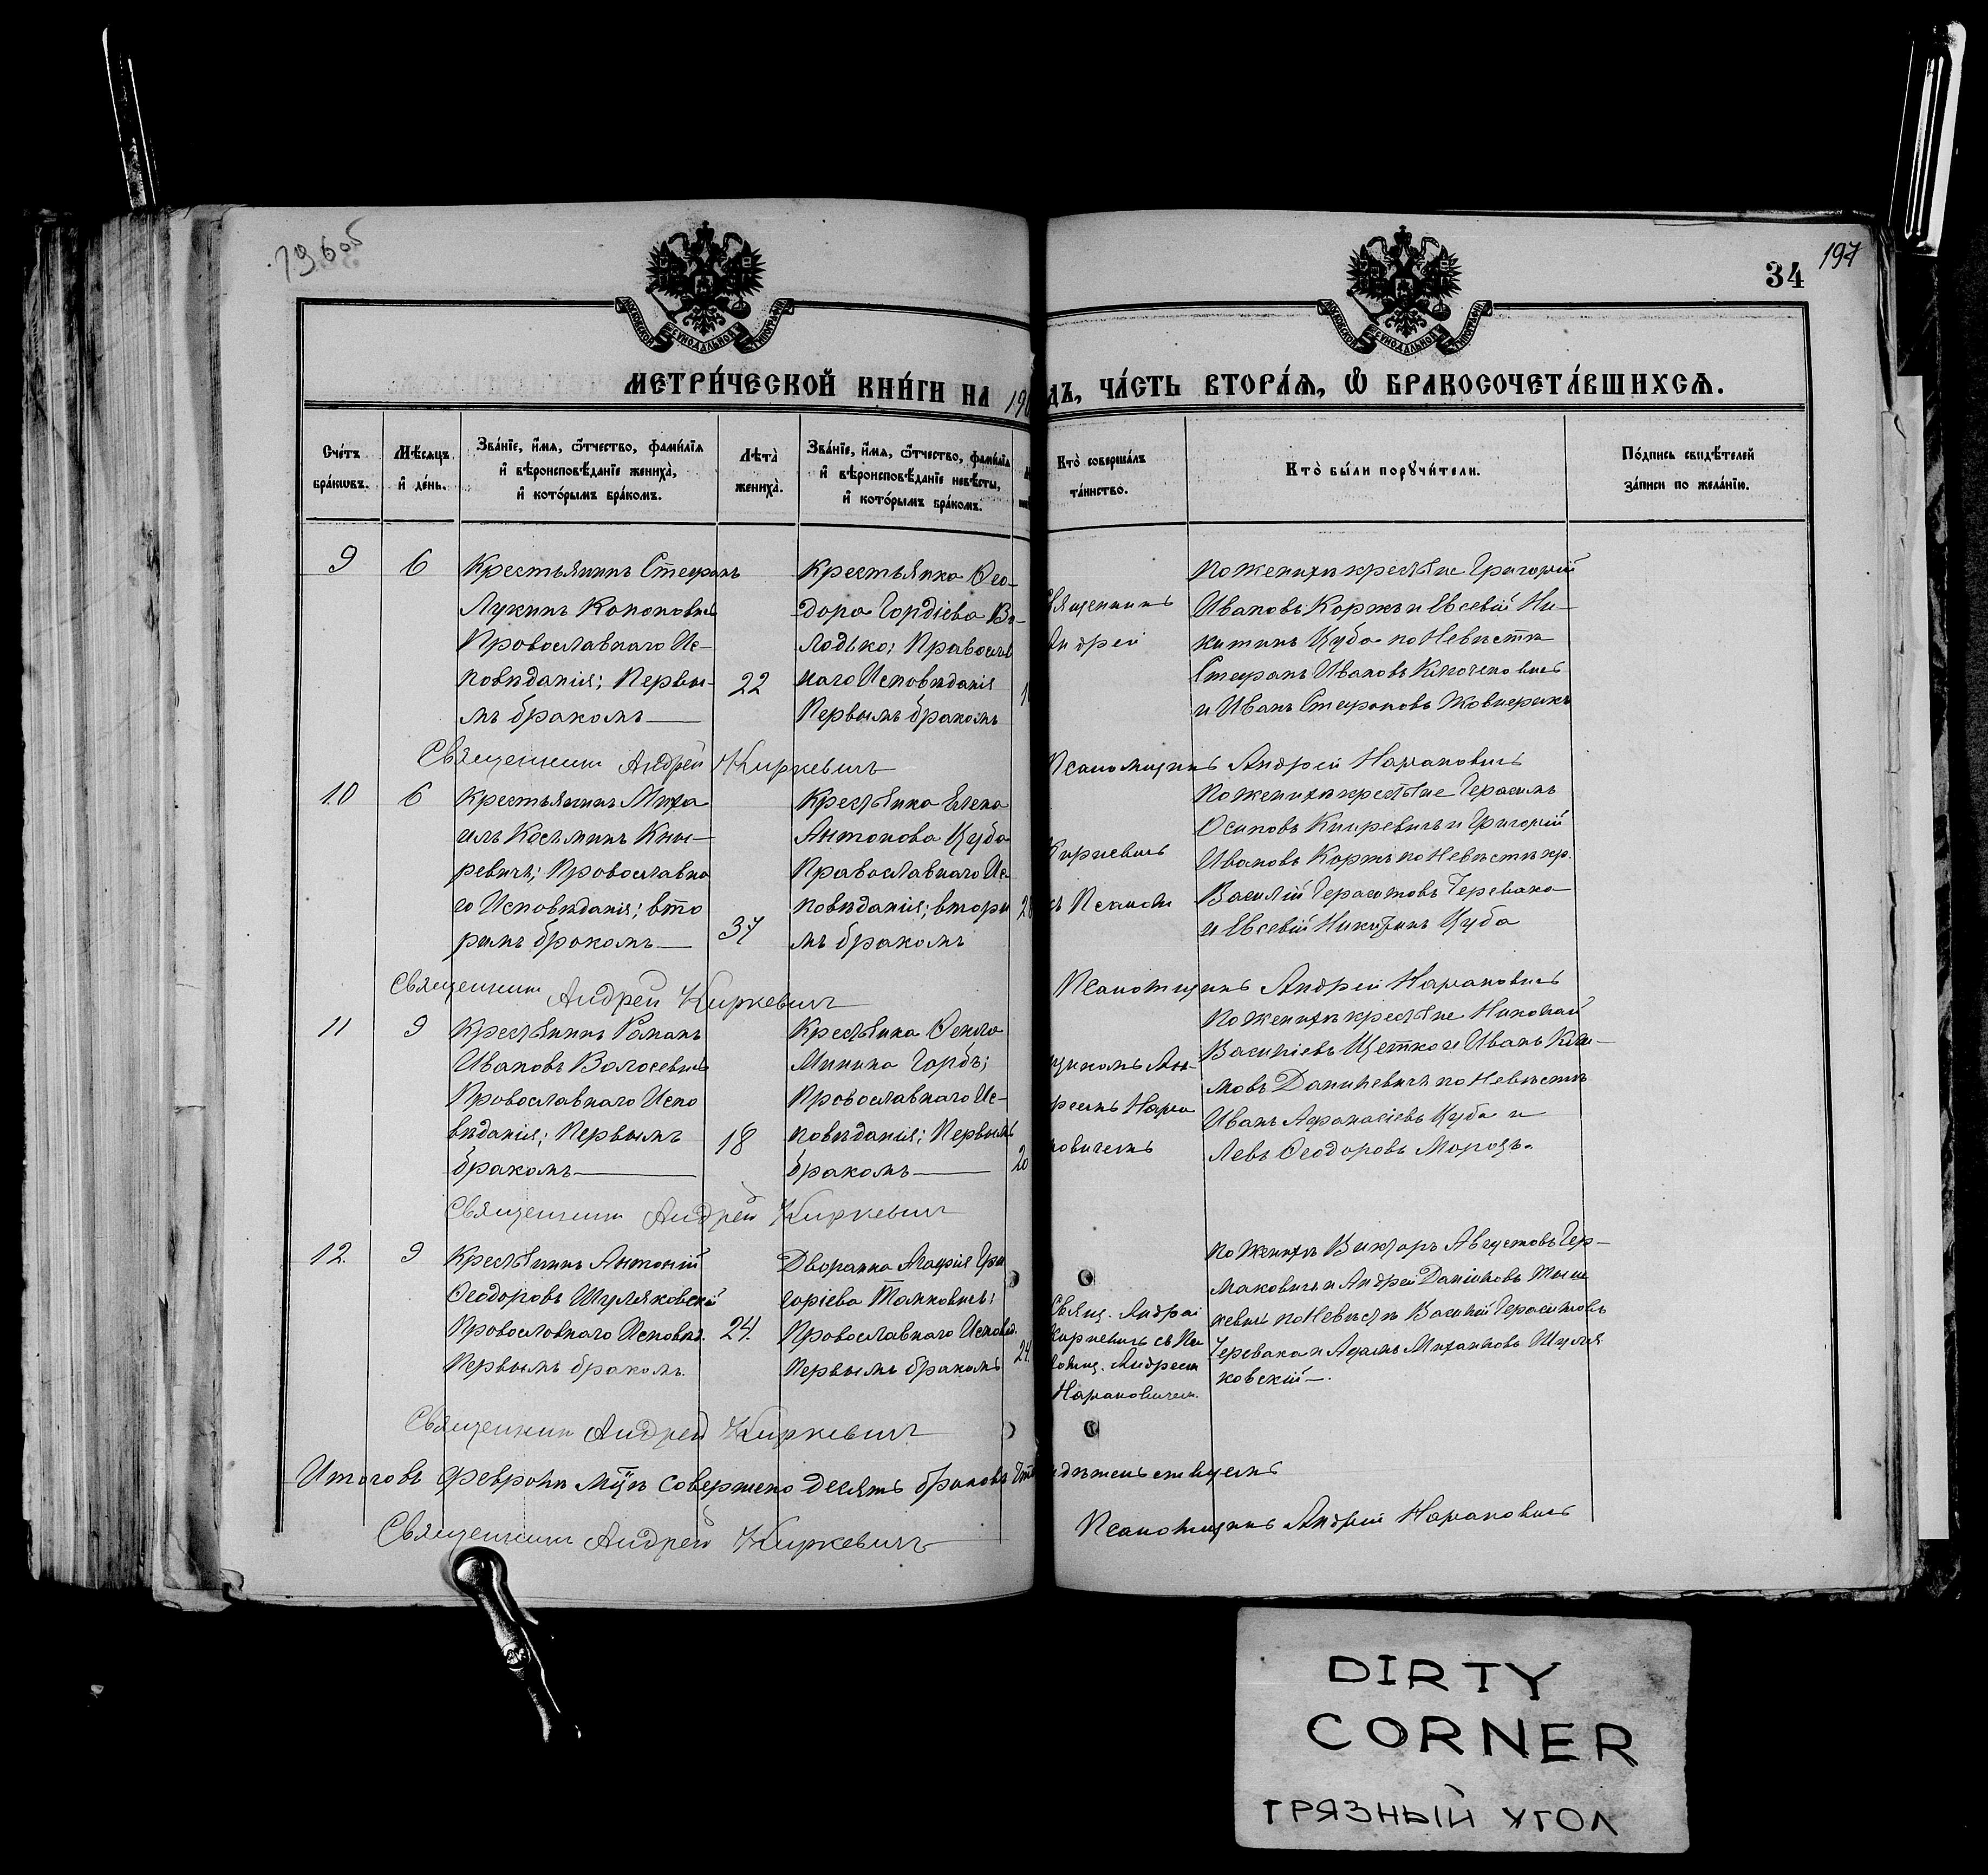 196 об
197
34
МОСКОВСКОЙ СѴНОДАЛЬНОЙ ТИПОГРАФІИ
МОСКОВСКОЙ СѴНОДАЛЬНОЙ ТИПОГРАФІИ
МЕТРИ́ЧЕСКОЙ КНИ́ГИ НА 190
ДЪ, ЧА́СТЬ ВТОРА́Ѧ, Ѽ БРАКОСОЧЕТА́ВШИХСѦ.
Сче́тъ бра́кѡвъ.
Мѣ́сяцъ и҆ де́нь.
Зва́нїе, и҆́мѧ, ѻ҆́тчество, фами́лїѧ
и҆ вѣроисповѣ́данїе жениха̀,
и҆ кото́рымъ бра́комъ.
Лѣ́та жениха̀.
Зва́нїе, и҆́мѧ, ѻ҆́тчество, фами́лїѧ
и҆ вѣроисповѣ́данїе невѣ́сты,
и҆ кото́рымъ бра́комъ.
Кто̀ соверша́лъ
та́инство.
Кто̀ бы́ли порꙋчи́тели.
По́дпись свидѣ́телей
за́писи по жела́нїю.
9
6
Крестьянинъ Стефанъ
Лукинъ Кононовичъ
Православнаго Ис-
повѣданія; Первы-
мъ бракомъ
22
Крестьянка Ѳео-
дора Гордіева Во-
лодько; Православ
наго Исповѣданія
Первымъ бракомъ
Священникъ
Андрей
По женихѣ крестьяне Григорій
Ивановъ Коржъ и Евсевій Ни-
китинъ Куба по Невѣстѣ
Стефанъ Ивановъ
и Иванъ Стефановъ
Священникъ Андрей Киркевичъ
Псаломщикъ Андрей
10
6
Крестьянинъ Миха
илъ Косминъ Кны-
ревичъ; Православна
го Исповѣданія; вто
рымъ бракомъ
37
Крестьянка Елена
Антонова Куба
Православнаго Ис-
повѣданія; вторы
мъ бракомъ
28
Киркевичъ
съ Псалом
По женихѣ крестьяне Герасимъ
Осиповъ Кныревичъ и Григорій
Ивановъ Коржъ по Невѣстѣ кр.
Василій Герасимовъ Черевако
и Евсевій Никитинъ Куба
Священникъ Андрей Киркевичъ
Псаломщикъ Андрей
11
9
Крестьянинъ Романъ
Ивановъ Волосевичъ
Православнаго Испо
вѣданія; Первымъ
бракомъ
18
Крестьянка
Минина Горбъ;
Православнаго Ис-
повѣданія; Первымъ
бракомъ
20
щикомъ Ан-
По женихѣ крестьяне Николай
Василіевъ Щетко и Иванъ Кли-
мовъ Данилевичъ по Невѣстѣ
Иванъ Афанасіевъ Куба и
Левъ Ѳеодоровъ Морозъ.
Священникъ Андрей Киркевичъ
12.
9
Крестьянинъ Антоній
Ѳеодоровъ Шуляковскій
Православнаго Исповѣд.
Первымъ бракомъ.
24.
Дворянка Агафія Гри
горіева Танковичъ;
Православнаго Исповѣд.
Первымъ бракомъ
24.
Свящ. Андрей
Киркевичъ съ Пса
ломщ. Андреем
По женихѣ Викторъ Августовъ Гер-
маковичъ и Андрей Даніиловъ Тыш
кевичъ по Невѣстѣ Василій Герасимовъ
Черевако и Адамъ Михаиловъ Шуля
ковскій.
Священникъ Андрей Киркевичъ
Итого въ Февралѣ мцѣ совершено десять браковъ
Священникъ Андрей Киркевичъ
Псаломщикъ Андрей
DIRTY
CORNER
ГРЯЗНЫЙ УГОЛ